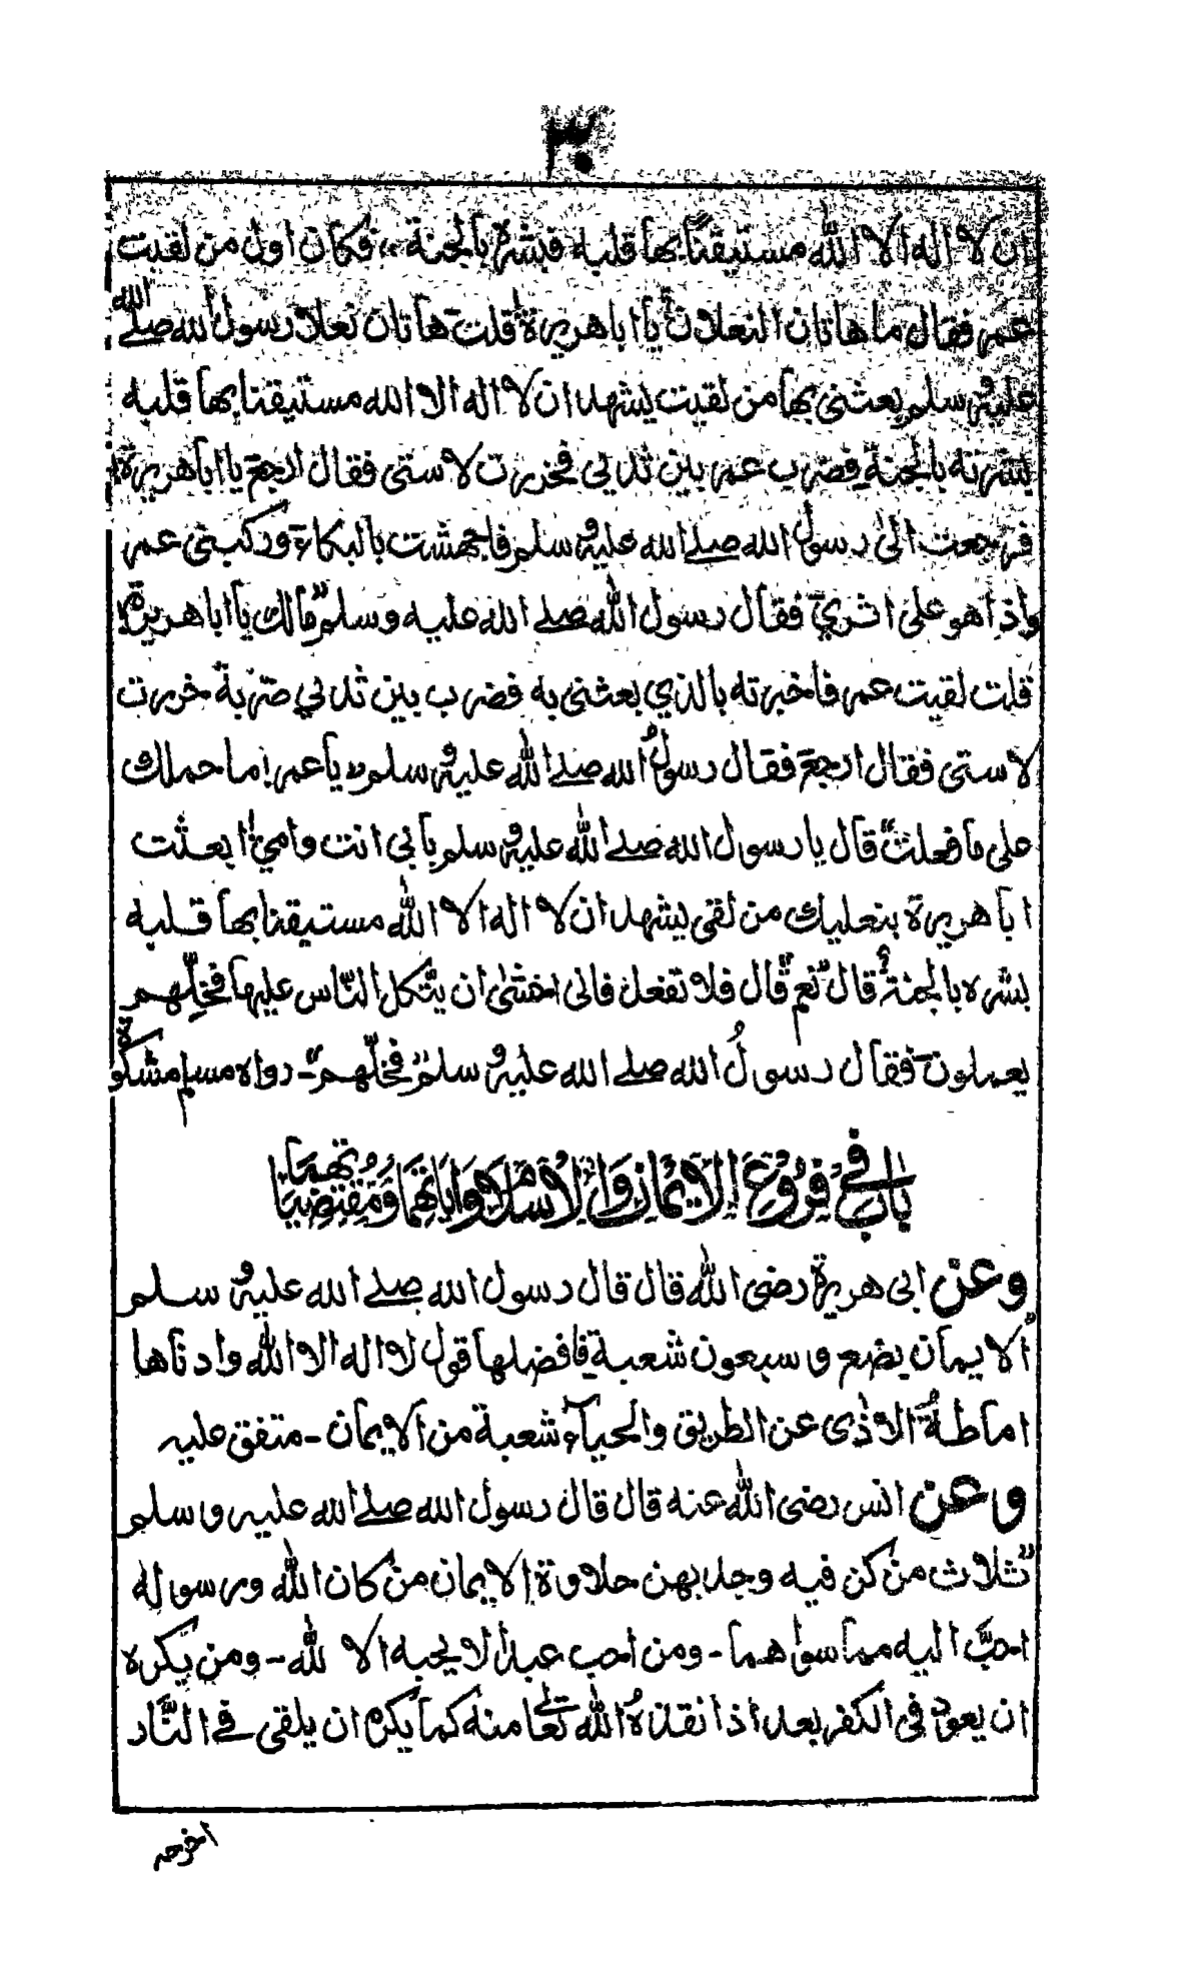 ٣٠
ان لا اله الا الله مستيقنًا بها قلبه فبشره بالجنة،، فكان اول من لقيت
عمر فقال ما هاتان النعلان يا ابا هريرة قلت هاتان نعلا رسول الله صلے الله
عليه وسلم بعثنى بهما من لقيت يشهد ان لا اله الا الله مستيقنا بها قلبه
بشرته بالجنة فضرب عمر بين ثديي فخررت لاستى فقال ارجع يا ابا هريرة
فرجعت الى رسول الله صلے الله عليه وسلم فاجهشت بالبكاء وركبنى عمر
واذا هو على اثري فقال رسول الله صلے الله عليه وسلم "مالك يا ابا هريرة"
قلت لقيت عمر فاخبرته بالذي بعثنى به فضرب بين ثديي ضربة خررت
لاستى فقال ارجع فقال رسول الله صلے الله عليه وسلم "يا عمر! ما حملك
على ما فعلت" قال يا رسول الله صلے الله عليه وسلم بابى انت وامي ا بعثت
ابا هريرة بنعليك من لقى يشهد ان لا اله الا الله مستيقنا بها قلبه
بشره بالجنة؟ قال "نعم" قال فلا تفعل فانى اخشى ان يتّكل النّاس عليها فخلّهم
يعملون فقال رسولُ الله صلے الله عليه وسلم "فخلّهم"۔ رواه مسلم مشكوة
باب فے فروع الايمان والاسلام واياتهما ومقتضياتهما
وعن ابى هريرة رضى الله قال قال رسول الله صلے الله عليه وسلم
"الايمان بضع و سبعون شعبة فافضلها قول لا اله الا الله وادناها
اماطةُ الاذى عن الطريق والحياء شعبة من الايمان۔ متفق عليه
وعن انس رضى الله عنه قال قال رسول الله صلے الله عليه وسلم
"ثلاث من كن فيه وجد بهن حلاوة الايمان من كان الله ورسوله
احبَّ اليه مما سواهما۔ ومن احب عبدا لا يحبه الا لله۔ ومن يكره
ان يعود فى الكفر بعد اذ انقذهُ الله تعالى منه كما يكره ان يلقى فے النَّار
اخرجه